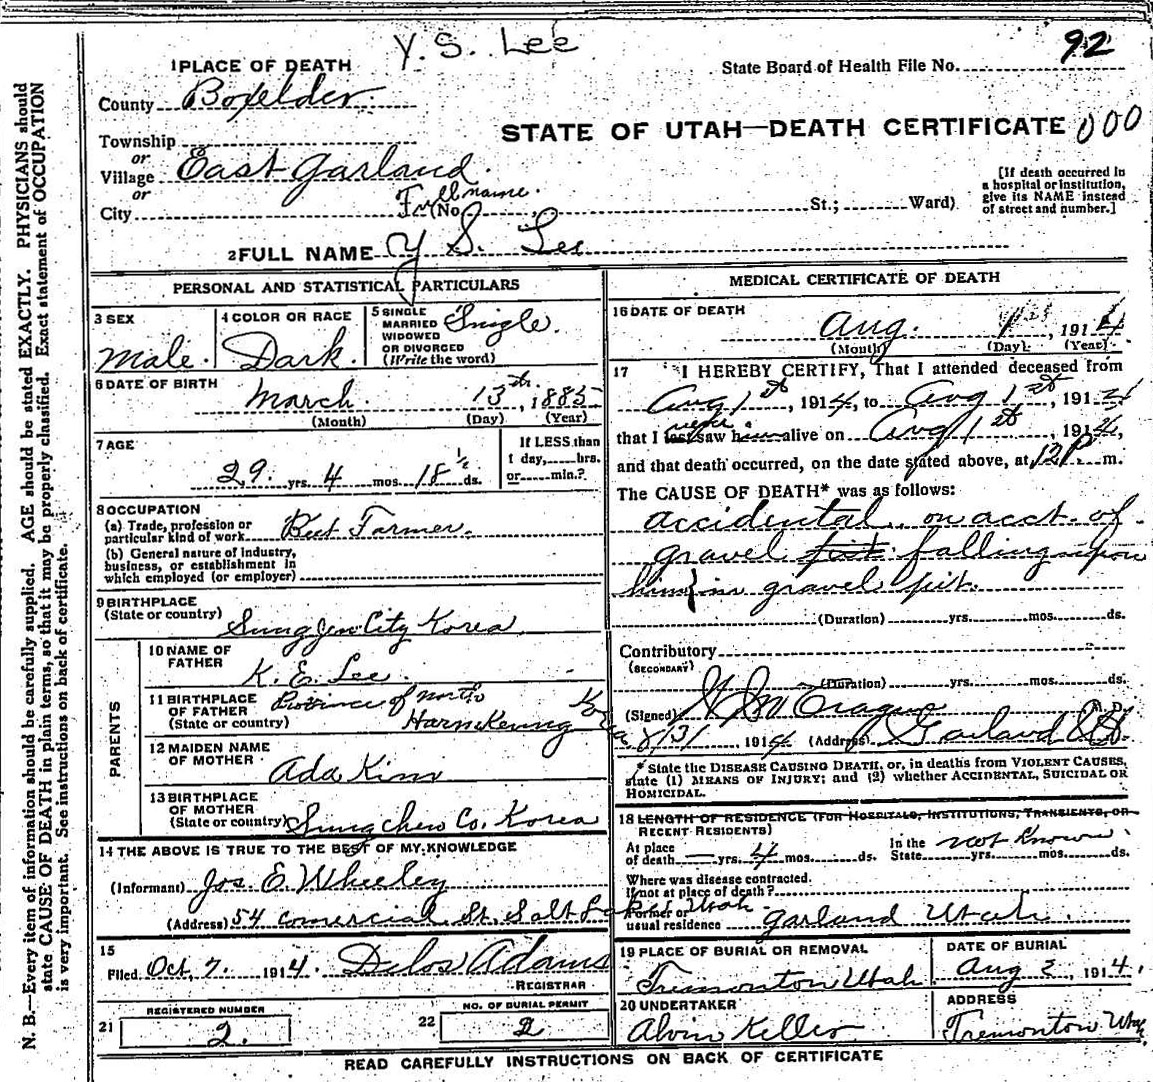 Y. S. Lee
92
1 PLACE OF DEATH
State Board of Health File No.
County Boxelder.
STATE OF UTAH—DEATH CERTIFICATE 000
Township
or
Village East Garland.
or
City
Full name.
(No. St.; Ward)
[If death occurred in
a hospital or institution,
give its NAME instead
of street and number.]
2 FULL NAME Y S. Lee
PERSONAL AND STATISTICAL PARTICULARS
3 SEX
Male.
4 COLOR OR RACE
Dark.
5 SINGLE
MARRIED
WIDOWED
OR DIVORCED
(Write the word)
Single.
6 DATE OF BIRTH
March. 13th, 1885
(Month) (Day) (Year)
7 AGE
29 yrs. 4 mos. 18 1/2 ds.
If LESS than
1 day, hrs.
or min.?
8 OCCUPATION
(a) Trade, profession or
particular kind of work Beet Farmer.
(b) General nature of industry,
business, or establishment in
which employed (or employer)
9 BIRTHPLACE
(State or country) City Korea
PARENTS
10 NAME OF
FATHER
K. E. Lee.
11 BIRTHPLACE
OF FATHER
(State or country)
Province of North
12 MAIDEN NAME
OF MOTHER
Ada Kim
13 BIRTHPLACE
OF MOTHER
(State or country) Co. Korea
14 THE ABOVE IS TRUE TO THE BEST OF MY KNOWLEDGE
(Informant) Jos E. Wheeley
(Address) 54 comercial St. Salt Lake Utah.
15
Filed Oct, 7. 1914. Delos Adams
REGISTRAR
21
REGISTERED NUMBER
2.
22
NO. OF BURIAL PERMIT
2
MEDICAL CERTIFICATE OF DEATH
16 DATE OF DEATH
Aug. 1st, 1914
(Month) (Day) (Year)
17 I HEREBY CERTIFY, That I attended deceased from
Aug 1st, 1914, to Aug 1st, 1914
that I last saw him alive on Aug 1st, 1914,
and that death occurred, on the date stated above, at 12 P. m.
The CAUSE OF DEATH* was as follows:
accidental, on acct. of
gravel falling upon
him in gravel pit.
(Duration) yrs. mos. ds.
Contributory
(SECONDARY)
(Duration) yrs. mos. ds.
(Signed) M. D.
8/31, 1914 (Address) Garland
* State the DISEASE CAUSING DEATH, or, in deaths from VIOLENT CAUSES,
state (1) MEANS OF INJURY; and (2) whether ACCIDENTAL, SUICIDAL OR
HOMICIDAL.
18 LENGTH OF RESIDENCE (FOR HOSPITALS, INSTITUTIONS, TRANSIENTS, OR
RECENT RESIDENTS)
At place
of death — yrs. 4 mos. ds.
In the
State yrs. mos. ds.
not known.
Where was disease contracted.
If not at place of death?
Former or
usual residence Garland Utah.
19 PLACE OF BURIAL OR REMOVAL
Tremonton Utah
DATE OF BURIAL
Aug 2, 1914.
20 UNDERTAKER
Alvin Keller
ADDRESS
Tremonton Utah
READ CAREFULLY INSTRUCTIONS ON BACK OF CERTIFICATE
N. B.—Every item of information should be carefully supplied. AGE should be stated EXACTLY. PHYSICIANS should
state CAUSE OF DEATH in plain terms, so that it may be properly classified. Exact statement of OCCUPATION
is very important. See instructions on back of certificate.